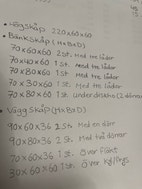 • Högskåp 220x60x60
• Bänkskåp (HxBxD)
70x60x60 2st. Med tre lådor
70x40x60 1st. Med tre lådor
70x80x60 1st. Med tre lådor
70x30x60 1st. Med tre lådor
70x80x60 1st (under diskho (2 dörrar
• Väggskåp (HxBxD)
90x60x36 2st. Med en dörr
90x80x36 2st. Med två dörrar
70x60x36 1st. Över Fläkt
30x60x60 1st. Över Kyl/Frys